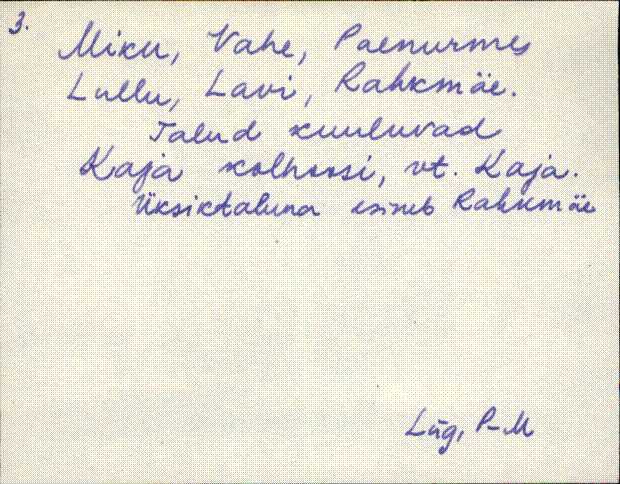 3.
Miku, Vahe, Paenurmes
Lullu, Lavi, Rahkmäe.
Talud kuuluvad
Kaja kolhoosi, vt. Kaja.
Üksiktaluna esineb Rahkmäe
Lüg, P-M